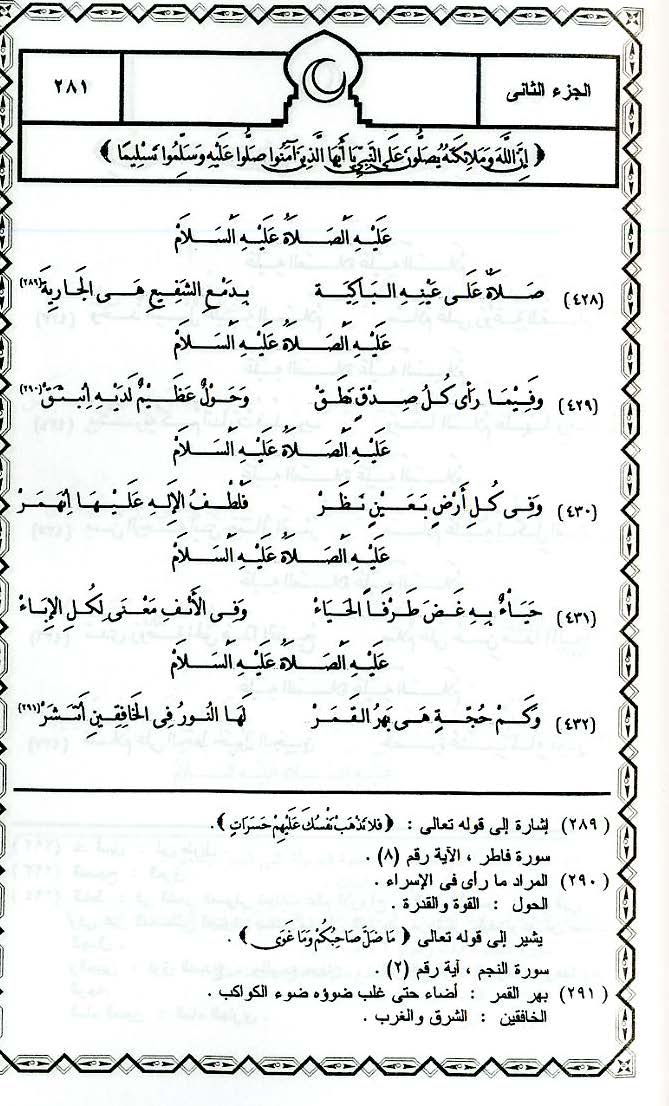 الجزء الثانى
٢٨١
﴿ إِنَّ اللَّهَ وَمَلَائِكَتَهُ يُصَلُّونَ عَلَى النَّبِيِّ يَا أَيُّهَا الَّذِينَ آمَنُوا صَلُّوا عَلَيْهِ وَسَلِّمُوا تَسْلِيمًا ﴾
عَلَيْهِ الصَّلَاةُ عَلَيْهِ السَّلَامْ
(٤٢٨) صَلَاةٌ عَلَى عَيْنِهِ البَاكِيَّةْ بِدَمْعِ الشَّفِيعِ هَىِ الجَارِيَةْ (٢٨٩)
عَلَيْهِ الصَّلَاةُ عَلَيْهِ السَّلَامْ
(٤٢٩) وَفِيْمَا رَأَى كُلُّ صِدْقٍ نَطَقْ وَحَوْلٌ عَظِيْمٌ لَدَيْهِ اِنْبَثَقْ (٢٩٠)
عَلَيْهِ الصَّلَاةُ عَلَيْهِ السَّلَامْ
(٤٣٠) وَفِى كُلِّ أَرْضٍ بَعَيْنٍ نَظَرْ فَلُطْفُ الإِلَهِ عَلَيْهَا اِنْهَمَرْ
عَلَيْهِ الصَّلَاةُ عَلَيْهِ السَّلَامْ
(٤٣١) حَيَاءٌ بِهِ غَضَّ طَرْفَاً الحَيَاءْ وَفِى الأَنْفِ مَعْنَى لِكُلِّ الإِبَاءْ
عَلَيْهِ الصَّلَاةُ عَلَيْهِ السَّلَامْ
(٤٣٢) وَكَمْ حُجَّةٍ هَىِ بَهْرُ القَمَرْ لَهَا النُورُ فِى الخَافِقِينِ اَنْتَشَرْ (٢٩١)
(٢٨٩) إشارة إلى قوله تعالى : ﴿ فَلَا تَذْهَبْ نَفْسُكَ عَلَيْهِمْ حَسَرَاتٍ ﴾ .
سورة فاطر ، الآية رقم (٨) .
(٢٩٠) المراد ما رأى فى الإسراء .
الحول : القوة والقدرة .
يشير إلى قوله تعالى ﴿ مَا ضَلَّ صَاحِبُكُمْ وَمَا غَوَى ﴾ .
سورة النجم ، آية رقم (٢) .
(٢٩١) بهر القمر : أضاء حتى غلب ضوؤه ضوء الكواكب .
الخافقين : الشرق والغرب .